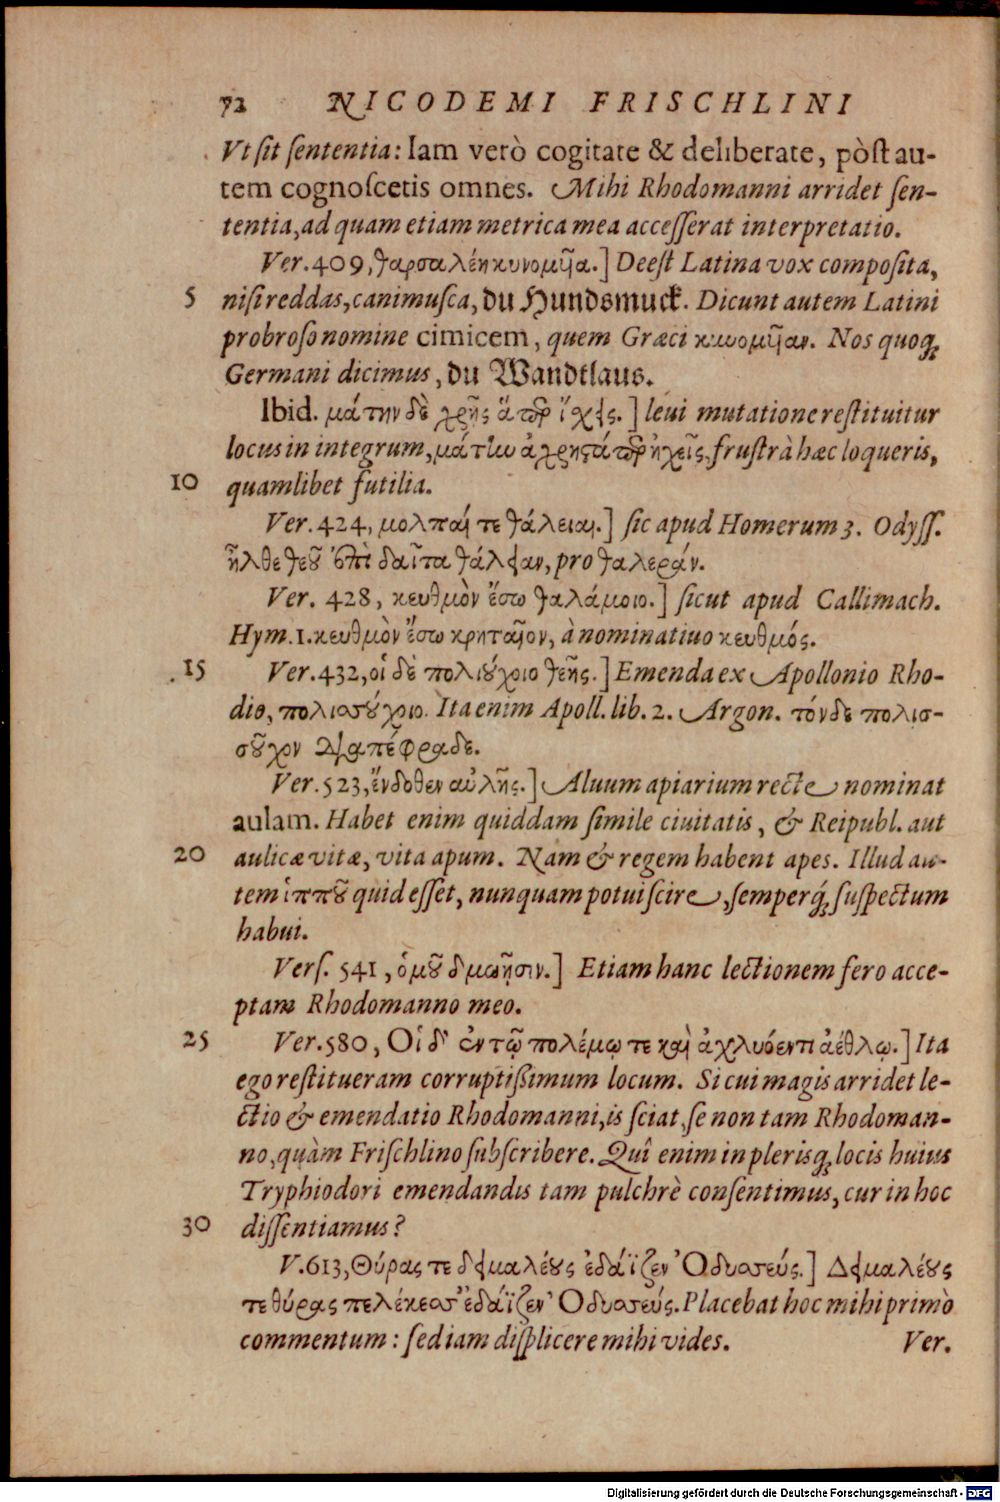 72 NICODEMI FRISCHLINI
Vt sit sententia: Iam verò cogitate & deliberate, pòst au-
tem cognoscetis omnes. Mihi Rhodomanni arridet sen-
tentia, ad quam etiam metrica mea accesserat interpretatio.
Ver. 409, θαρσαλέη κυνομυῖα.] Deest Latina vox composita,
5 nisi reddas, canimusca, du Hundsmuck. Dicunt autem Latini
probroso nomine cimicem, quem Græci κυνομυῖαν. Nos quoq;
Germani dicimus, du Wandtlaus.
Ibid. μάτην δὲ χρῆς ἅπερ ἴχεις.] leui mutatione restituitur
locus in integrum, μάτην ἀχρηστάπερ ἠχεῖς, frustrà hæc loqueris,
10 quamlibet futilia.
Ver. 424, μολπαί τε θάλειαι.] sic apud Homerum 3. Odyss.
ἦλθε θεοῦ ἐπὶ δαῖτα θάλειαν, pro θαλεράν.
Ver. 428, κευθμὸν ἔσω θαλάμοιο.] sicut apud Callimach.
Hym. 1. κευθμὸν ἔσω κρηταῖον, à nominatiuo κευθμός.
15 Ver. 432, οἱ δὲ πολιούχοιο θεῆς.] Emenda ex Apollonio Rho-
dio, πολιασούχοιο. Ita enim Apoll. lib. 2. Argon. τόνδε πολισ-
σοῦχον διαπέφραδε.
Ver. 523, ἔνδοθεν αὐλῆς.] Aluum apiarium recte nominat
aulam. Habet enim quiddam simile ciuitatis, & Reipubl. aut
20 aulicæ vitæ, vita apum. Nam & regem habent apes. Illud au-
tem ἱππου quid esset, nunquam potui scire, semperq́; suspectum
habui.
Vers. 541, ὁμοῦ δμωῇσιν.] Etiam hanc lectionem fero acce-
ptam Rhodomanno meo.
25 Ver. 580, Οἱ δ' ἐν τῷ πολέμῳ τε καὶ ἀχλυόεντι ἀέθλῳ.] Ita
ego restitueram corruptißimum locum. Si cui magis arridet le-
ctio & emendatio Rhodomanni, is sciat, se non tam Rhodoman-
no, quàm Frischlino subscribere. Quî enim in plerisq; locis huius
Tryphiodori emendandis tam pulchrè consentimus, cur in hoc
30 dissentiamus?
V. 613, Θύρας τε δειμαλέους ἐδάϊζεν Ὀδυσσεύς.] Δειμαλέους
τε θύρας πελέκεσσ' ἐδάϊζεν Ὀδυσσεύς. Placebat hoc mihi primò
commentum: sed iam displicere mihi vides. Ver.
Digitalisierung gefördert durch die Deutsche Forschungsgemeinschaft - DFG